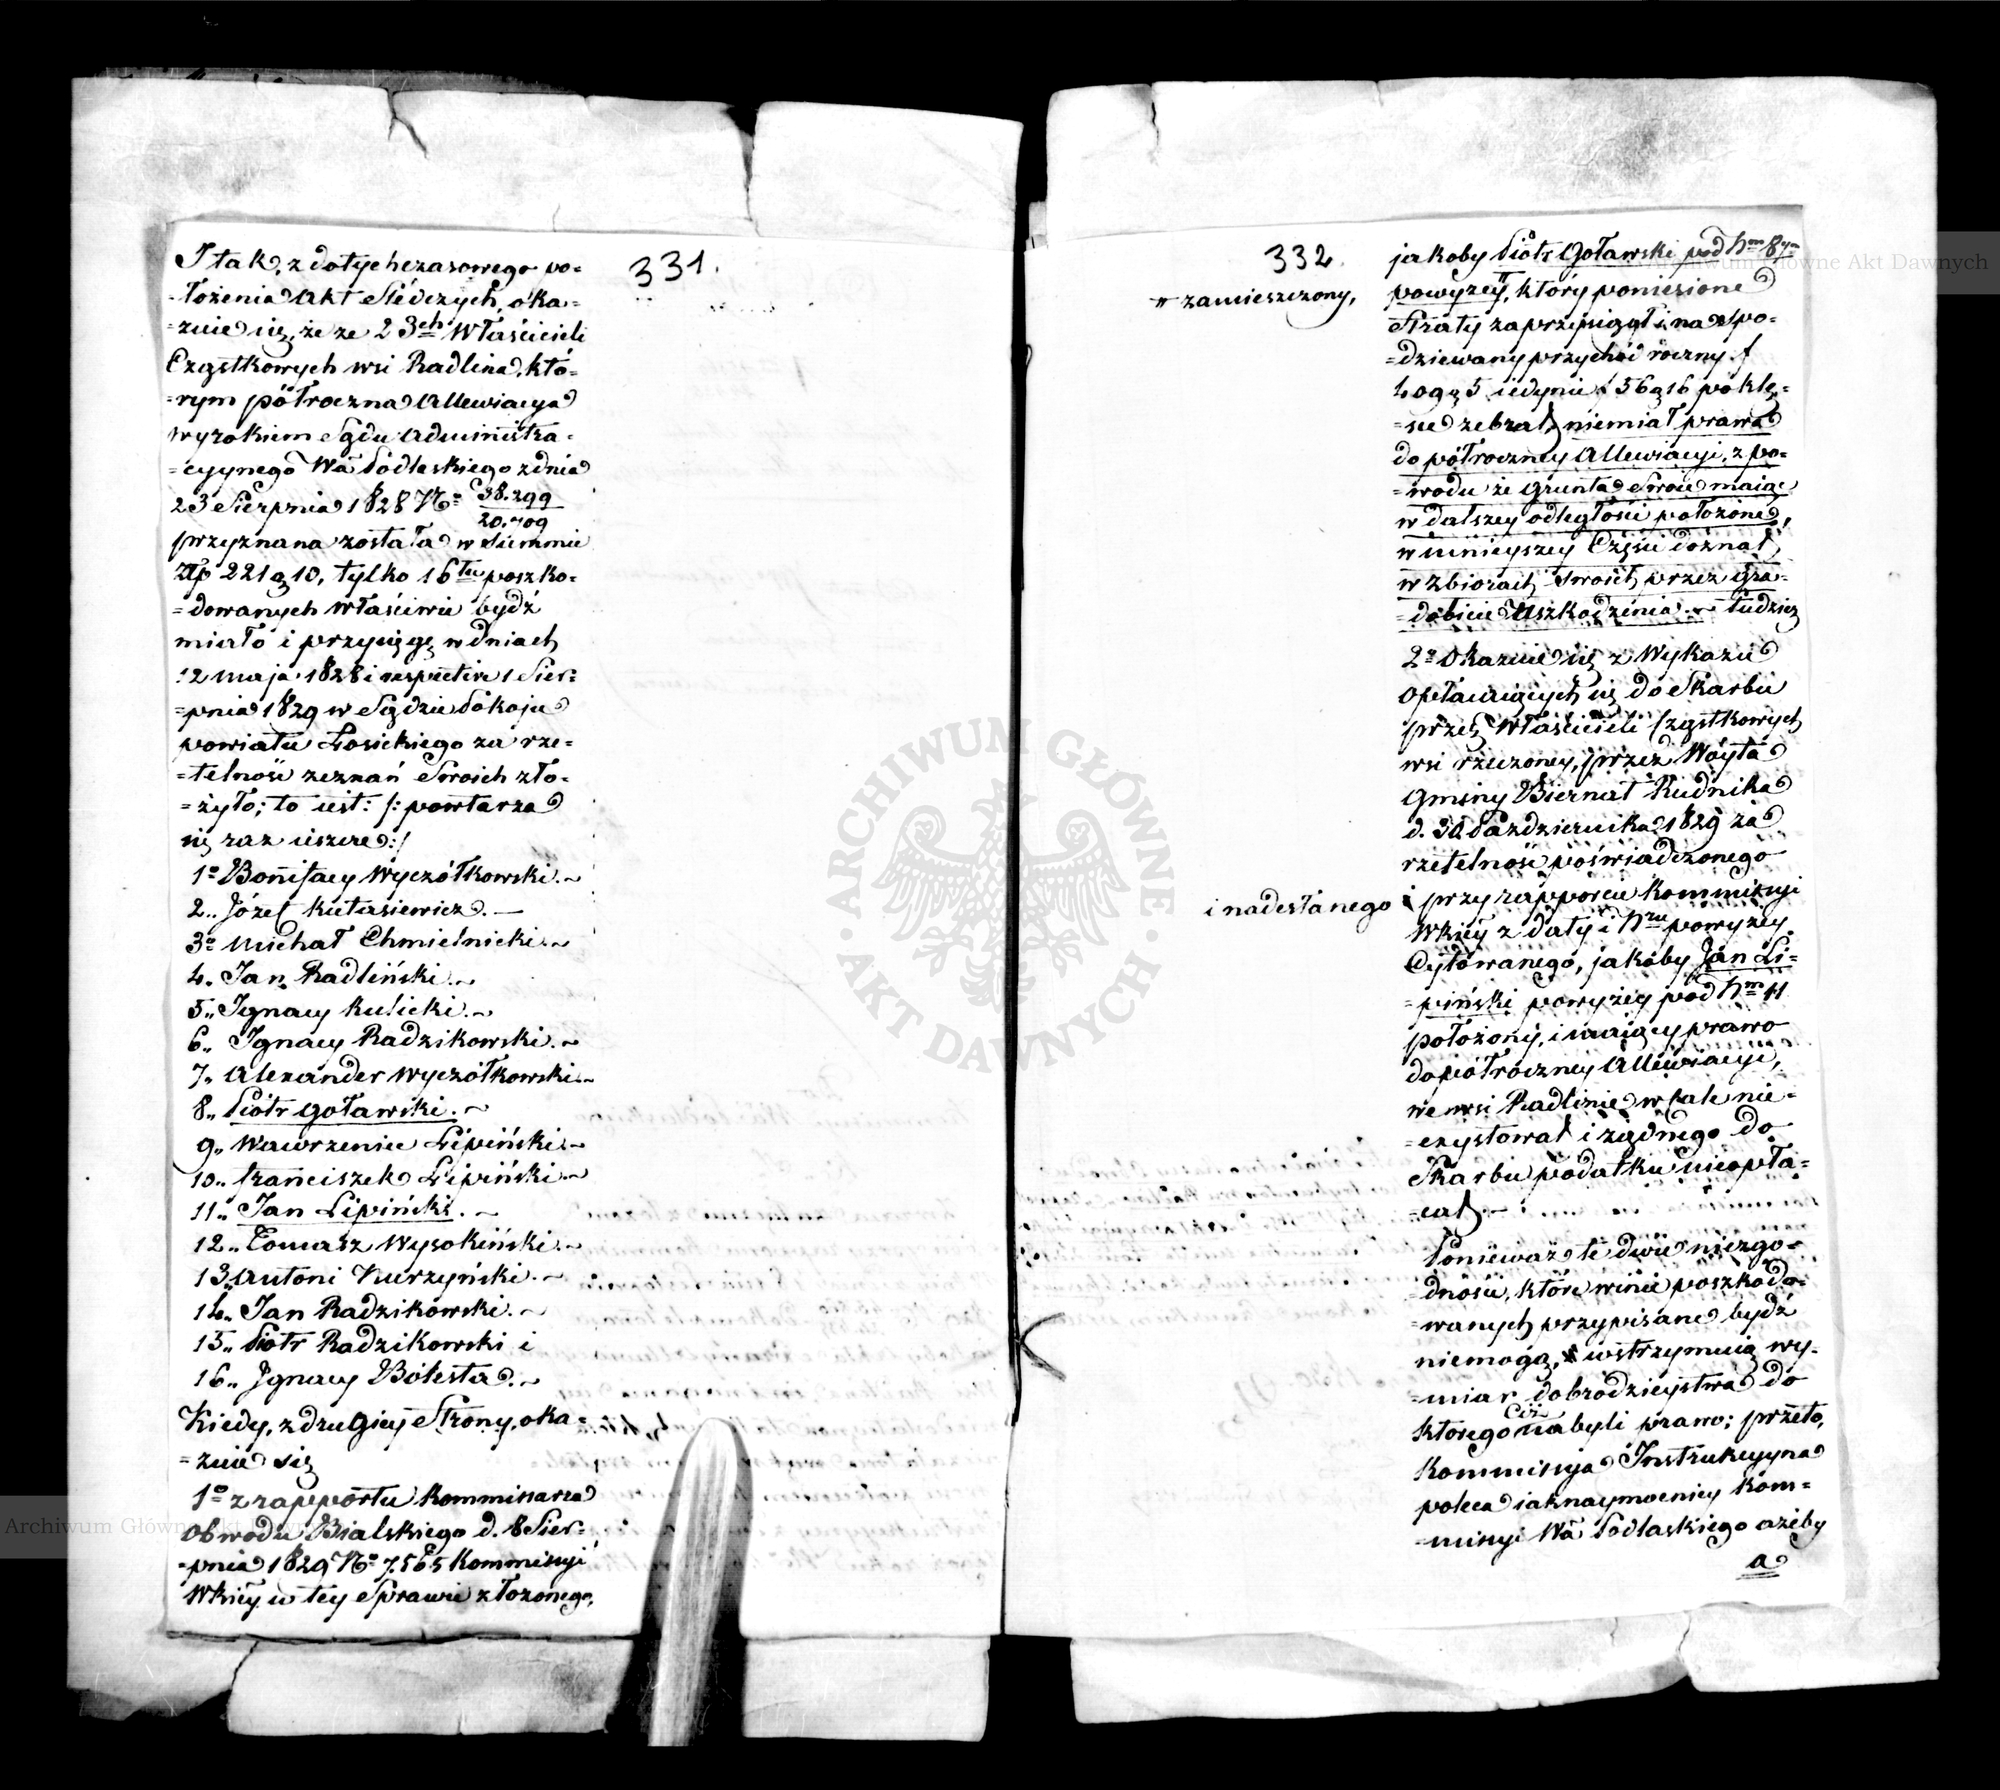 331.
I tak, z dotychczasowego po-
=łożenia Akt Śledczych, oka-
=zuie się, że ze 23ch Właścicieli
Cząstkowych wsi Radlina, któ-
=rym półroczna Allewiacya
wyrokiem Sądu Administra-
=cyynego Wa Podlaskiego z dnia
23 Sierpnia 1828 No 38.299/20.709
przyznana została w Summie
Złp 221 g 10, tylko 16tu poszko-
=dowanych właściwie bydź
miało i przysięgę w dniach
12 maja 1828 i respective 1 Sier-
=pnia 1829 w Sądzie Pokoju
powiatu Łosickiego za rze-
=telność zeznań Swoich zło-
=żyło; to iest: /: powtarza
się raz ieszcze :/
1o Bonifacy Wyczółkowski.~
2.. Józef Kutasiewicz. —
3o Michał Chmielnicki.~
4. Jan Radliński.~
5.. Ignacy Kulicki.~
6.. Ignacy Radzikowski.~
7.. Alexander Wyczółkowski.~
8.. Piotr Goławski.~
9.. Wawrzeniec Lipiński.~
10.. Franciszek Lipiński.~
11.. Jan Lipiński.~
12.. Tomasz Wysokiński.~
13.. Antoni Kurzyński.~
14.. Jan Radzikowski.~
15.. Piotr Radzikowski i
16.. Ignacy Bolesta.~
Kiedy, z drugiey Strony, oka=
=zuie się
1o z rapportu Kommissarza
Obwodu Bialskiego d. 8 Sier-
=pnia 1829 No 7.565 Kommissyi
Wkiey w tey Sprawie złożonego,
332.
jakoby Piotr Goławski pod Nm 8ym
powyżey, który poniesione
zamieszczony,
Straty zaprzysiągł i na spo-
=dziewany przychód roczny f
409 g 5 iedynie f 56 g 16 po klę-
=sce zebrał, niemiał prawa
do półroczney Allewiacyi, z po-
=wodu że Grunta Swoie maiąc
w dalszey odległości położone,
w mnieyszey Części doznał
w zbiorach Swoich przez gra-
=dobicie Uszkodzenia.~ tudzież
2o Okazuie się z Wykazu
opłacaiących się do Skarbu
przez Właścicieli Cząstkowych
wsi rzeczoney, przez Wóyta
Gminy Biernat Rudnika
d. 30 Października 1829 za
rzetelność poświadczonego
i nadesłanego
przy rapporcie Kommissyi
Wkiey z daty i Nru powyżey
Cytowanego, jakoby Jan Li-
=piński powyżey pod Nm 11
położony, i maiący prawo
do półroczney Allewiacyi,
we wsi Radlinie wcale nie-
=exystował i żadnego do
Skarbu podatku nieopła-
=cał.—
Ponieważ te dwie niezgo-
=dności, które winie poszkodo-
=wanych przypisane bydź
niemogą, wstrzymuią wy-
=miar dobrodzieystwa do
którego ciż nabyli prawo; przeto,
Kommissya Instrukcyyna
poleca iaknaymocniey Kom-
=missyi Wa Podlaskiego ażeby
a
ARCHIWUM GŁÓWNE · AKT DAWNYCH ·
Archiwum Główne Akt Dawnych